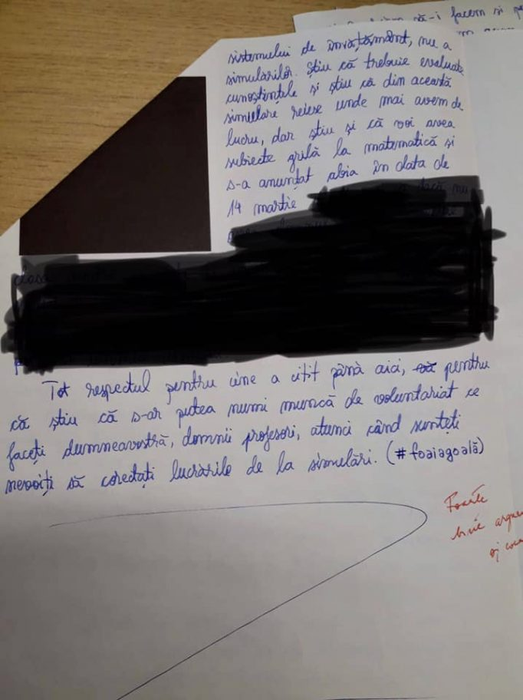 să-i facem și
sistemului de învățământ, nu a
simulărilor. Știu că trebuie evaluate
cunoștințele și știu că din această
simulare reiese unde mai avem de
lucru, dar știu și că voi avea
subiecte grilă la matematică și
s-a anunțat abia în data de
19 martie
Tot respectul pentru cine a citit până aici, pentru
că știu că s-ar putea numi muncă de voluntariat ce
faceți dumneavostră, domnii profesori, atunci când sunteți
nevoiți să corectați lucrările de la simulări. (#foaiagoală)
Foarte
bine
și